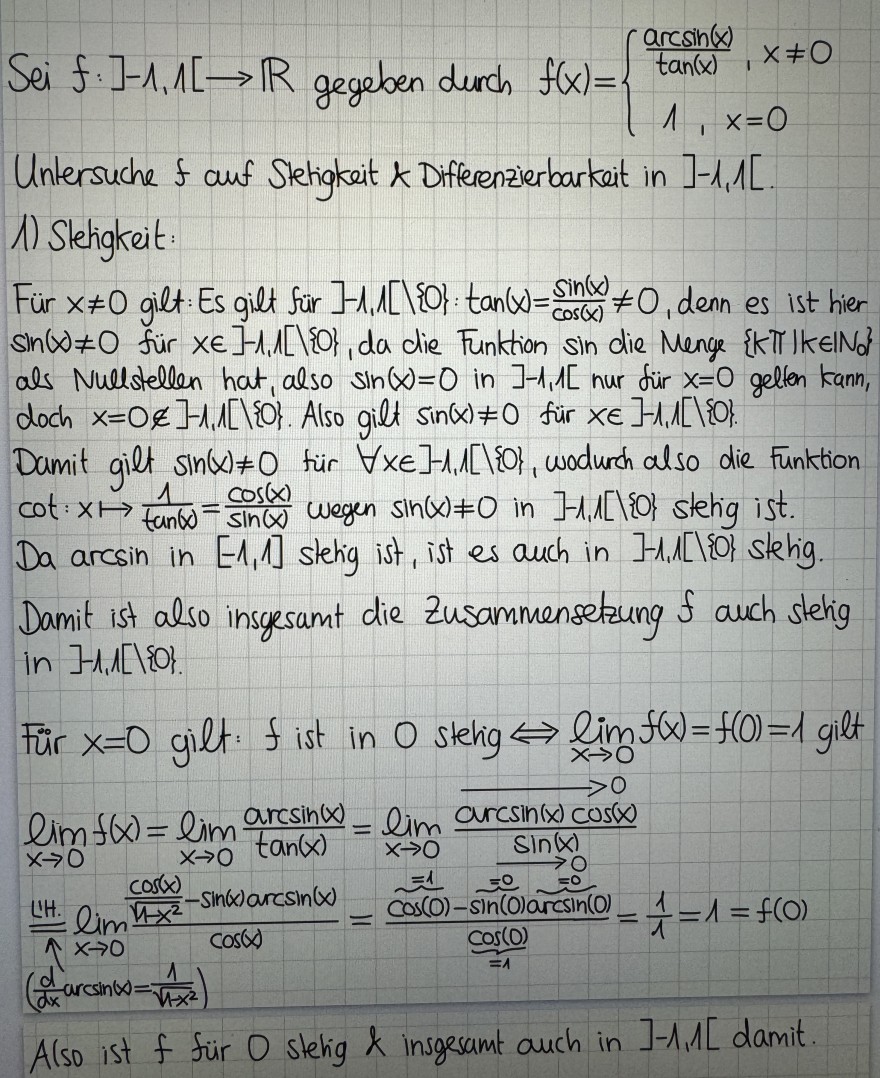 Sei f: ]-1,1[ → ℝ gegeben durch f(x) = { arcsin(x)/tan(x) , x≠0
1 , x=0
Untersuche f auf Stetigkeit & Differenzierbarkeit in ]-1,1[.
1) Stetigkeit:
Für x≠0 gilt: Es gilt für ]-1,1[\{0}: tan(x) = sin(x)/cos(x) ≠ 0, denn es ist hier
sin(x)≠0 für x∈]-1,1[\{0}, da die Funktion sin die Menge {kπ|k∈ℕ₀}
als Nullstellen hat, also sin(x)=0 in ]-1,1[ nur für x=0 gelten kann,
doch x=0∉]-1,1[\{0}. Also gilt sin(x)≠0 für x∈]-1,1[\{0}.
Damit gilt sin(x)≠0 für ∀x∈]-1,1[\{0}, wodurch also die Funktion
cot: x ↦ 1/tan(x) = cos(x)/sin(x) wegen sin(x)≠0 in ]-1,1[\{0} stetig ist.
Da arcsin in [-1,1] stetig ist, ist es auch in ]-1,1[\{0} stetig.
Damit ist also insgesamt die Zusammensetzung f auch stetig
in ]-1,1[\{0}.
Für x=0 gilt: f ist in 0 stetig ⟺ lim x→0 f(x) = f(0) = 1 gilt
→0
lim x→0 f(x) = lim x→0 arcsin(x)/tan(x) = lim x→0 arcsin(x) cos(x)/sin(x)
→0
=1 =0 =0
L'H. = lim x→0 (cos(x)/√(1-x²) - sin(x)arcsin(x))/cos(x) = (cos(0)-sin(0)arcsin(0))/cos(0) = 1/1 = 1 = f(0)
=1
↑
(d/dx arcsin(x) = 1/√(1-x²))
Also ist f für 0 stetig & insgesamt auch in ]-1,1[ damit.